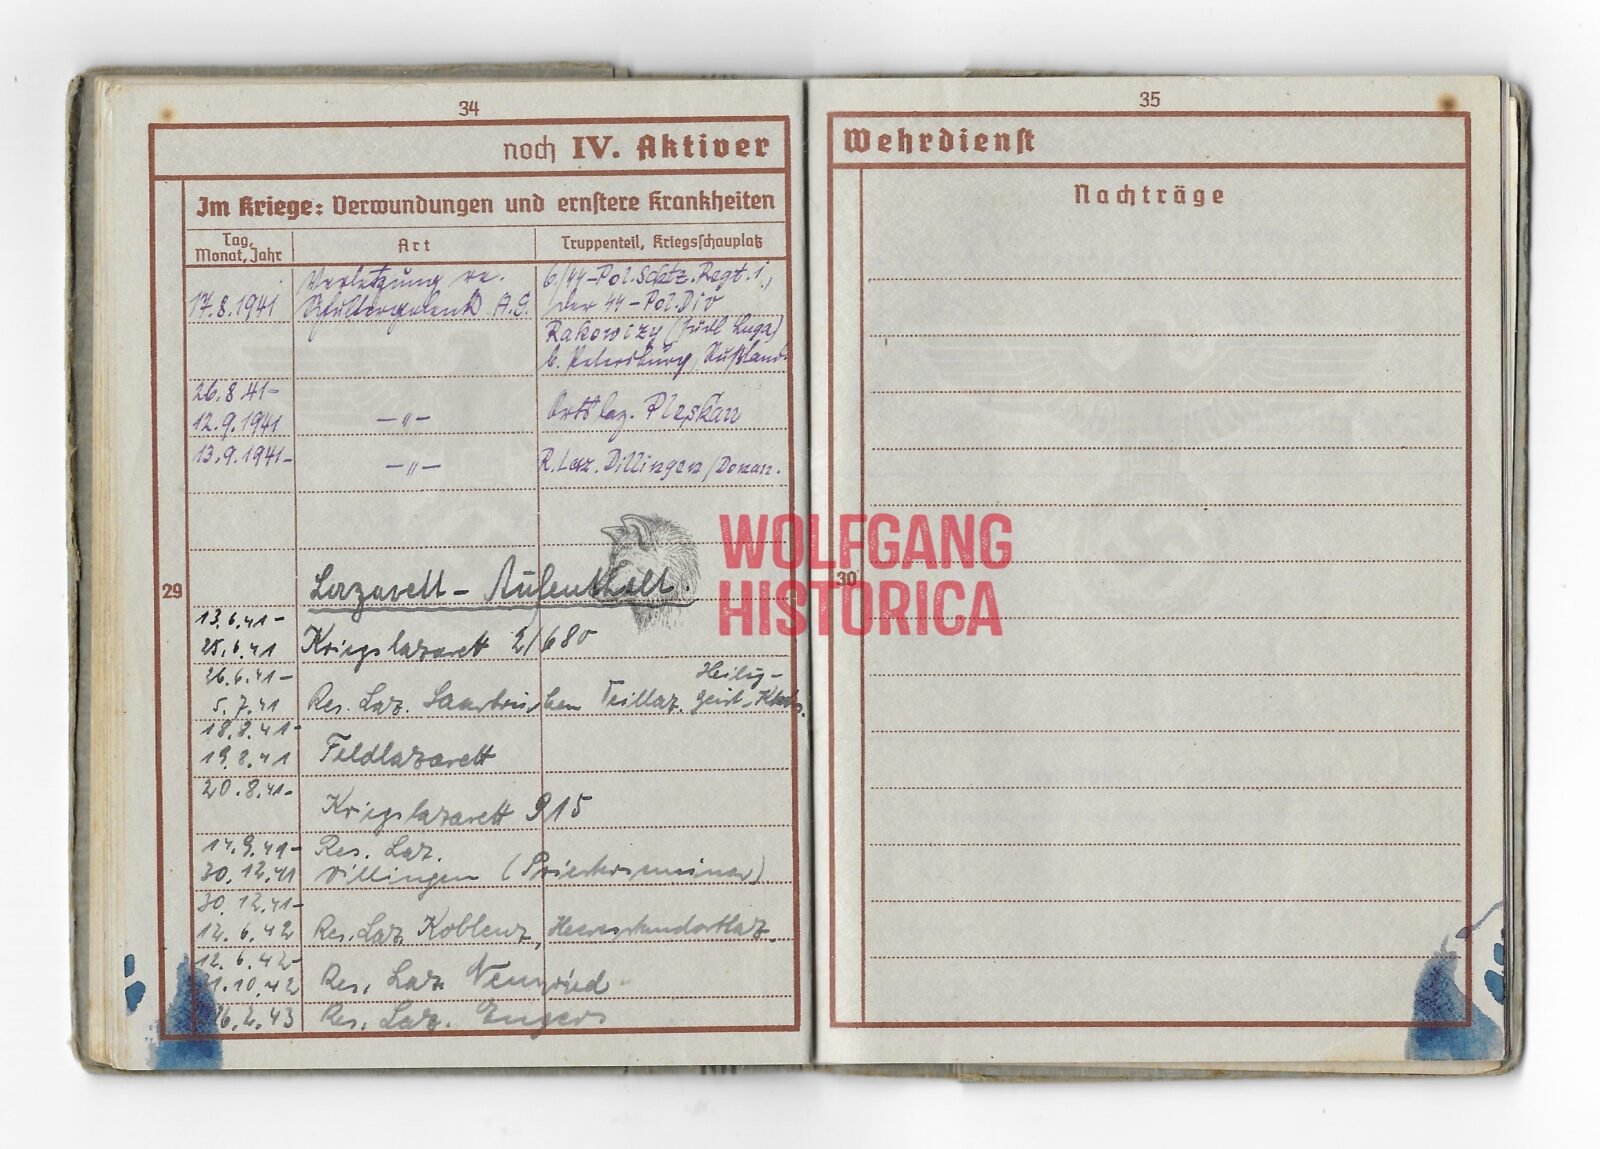 34
noch IV. Aktiver
Im Kriege: Verwundungen und ernstere Krankheiten
Tag, Monat, Jahr
Art
Truppenteil, Kriegsschauplatz
17.8.1941
Verletzung re.
Schultergelenk A.G.
6/44-Pol.Schtz.Regt.1,
der 44-Pol.Div
Rakowiczy (südl Luga)
b. Petersburg, Rußland.
26.8.41-
12.9.1941
-"-
Ortslaz. Pleskau
13.9.1941-
-"-
R.Laz. Dillingen/Donau.
29
Lazarett-Aufenthalt.
13.6.41-
25.6.41 Kriegslazarett 2/680
26.6.41-
5.7.41 Res. Laz. Saarbrücken Teillaz. Heilig-
geist-
18.8.41-
19.8.41 Feldlazarett
20.8.41-
Kriegslazarett 915
Res. Laz.
30.12.41 Dillingen (Priesterseminar)
30.12.41-
12.6.42 Res. Laz. Koblenz,
12.6.42-
1.10.42 Res. Laz. Neuwied
16.2.43 Res. Laz. Engers
35
Wehrdienst
Nachträge
30
WOLFGANG
HISTORICA